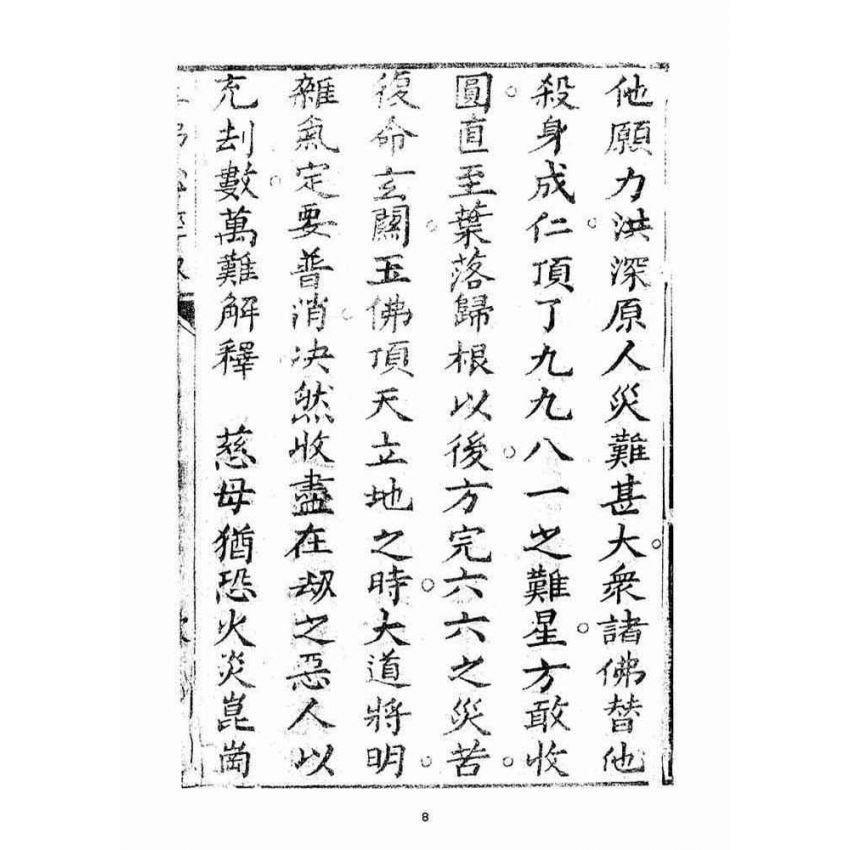 他願力洪深原人災難甚大。眾諸佛替他
殺身成仁。頂了九九八一之難星。方敢收
圓。直至葉落歸根以後。方完六六之災苦。
復命玄關。玉佛頂天立地之時。大道將明。
雜氣定要普消。决然收盡在刼之惡人以
充刦數。萬難解釋　慈母猶恐火炎崑崗
8